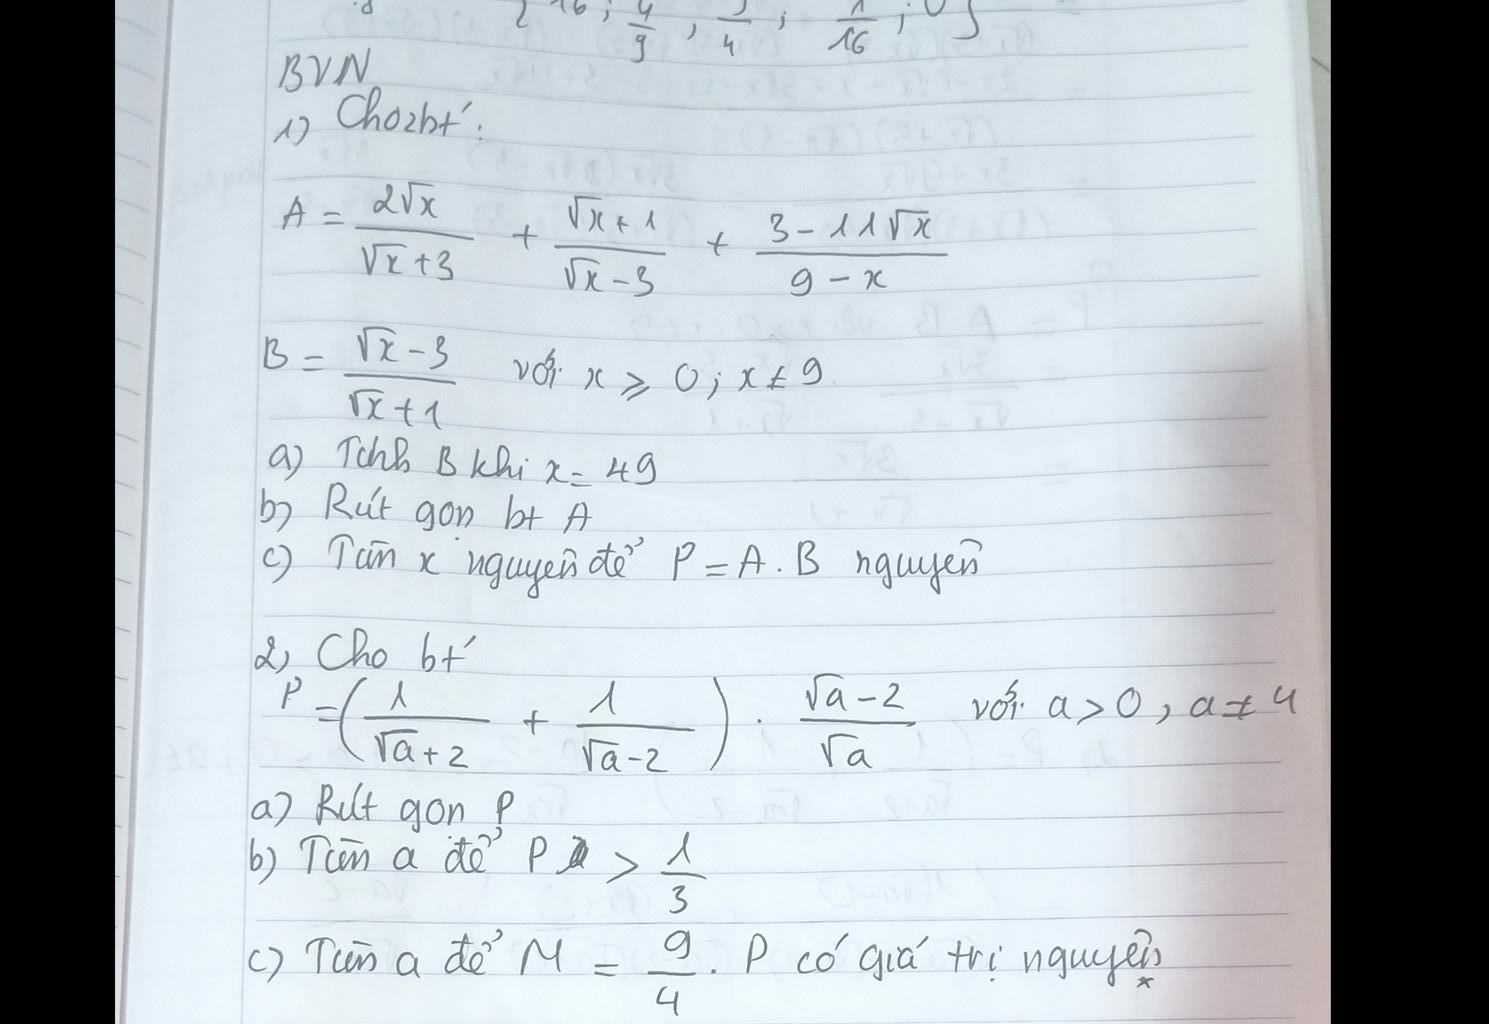 16 ; 4/9 , 3/4 ; 1/16 ; 0 }
BVN
1) Cho 2 bt':
A = 2√x/(√x+3) + (√x+1)/(√x-3) + (3-11√x)/(9-x)
B = (√x-3)/(√x+1) với x ⩾ 0 ; x ≠ 9
a) Tính B khi x = 49
b) Rút gọn bt A
c) Tìm x nguyên để P = A . B nguyên
2, Cho bt'
P = (1/(√a+2) + 1/(√a-2)) . (√a-2)/√a với a > 0 , a ≠ 4
a) Rút gọn P
b) Tìm a để P > 1/3
c) Tìm a để M = 9/4 . P có giá trị nguyên